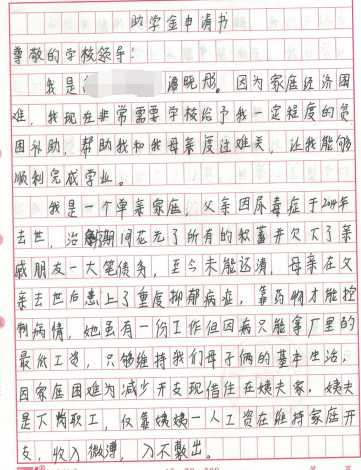 助学金申请书
尊敬的学校领导:
我是 潘晓彤。因为家庭经济困
难,我现在非常需要学校给予我一定程度的贫
困补助,帮助我和我母亲度过难关,让我能够
顺利完成学业。
我是一个单亲家庭,父亲因尿毒症于2014年
去世,治疗期间花光了所有的积蓄并欠下了亲
戚朋友一大笔债务,至今未能还清,母亲在父
亲去世后患上了重度抑郁病症,靠药物才能控
制病情,她虽有一份工作但因病只能拿厂里的
最低工资,只够维持我们母子俩的基本生活。
因家庭困难为减少开支现借住在姨夫家,姨夫
是下岗职工,仅靠姨姨一人工资在维持家庭开
支,收入微薄,入不敷出。